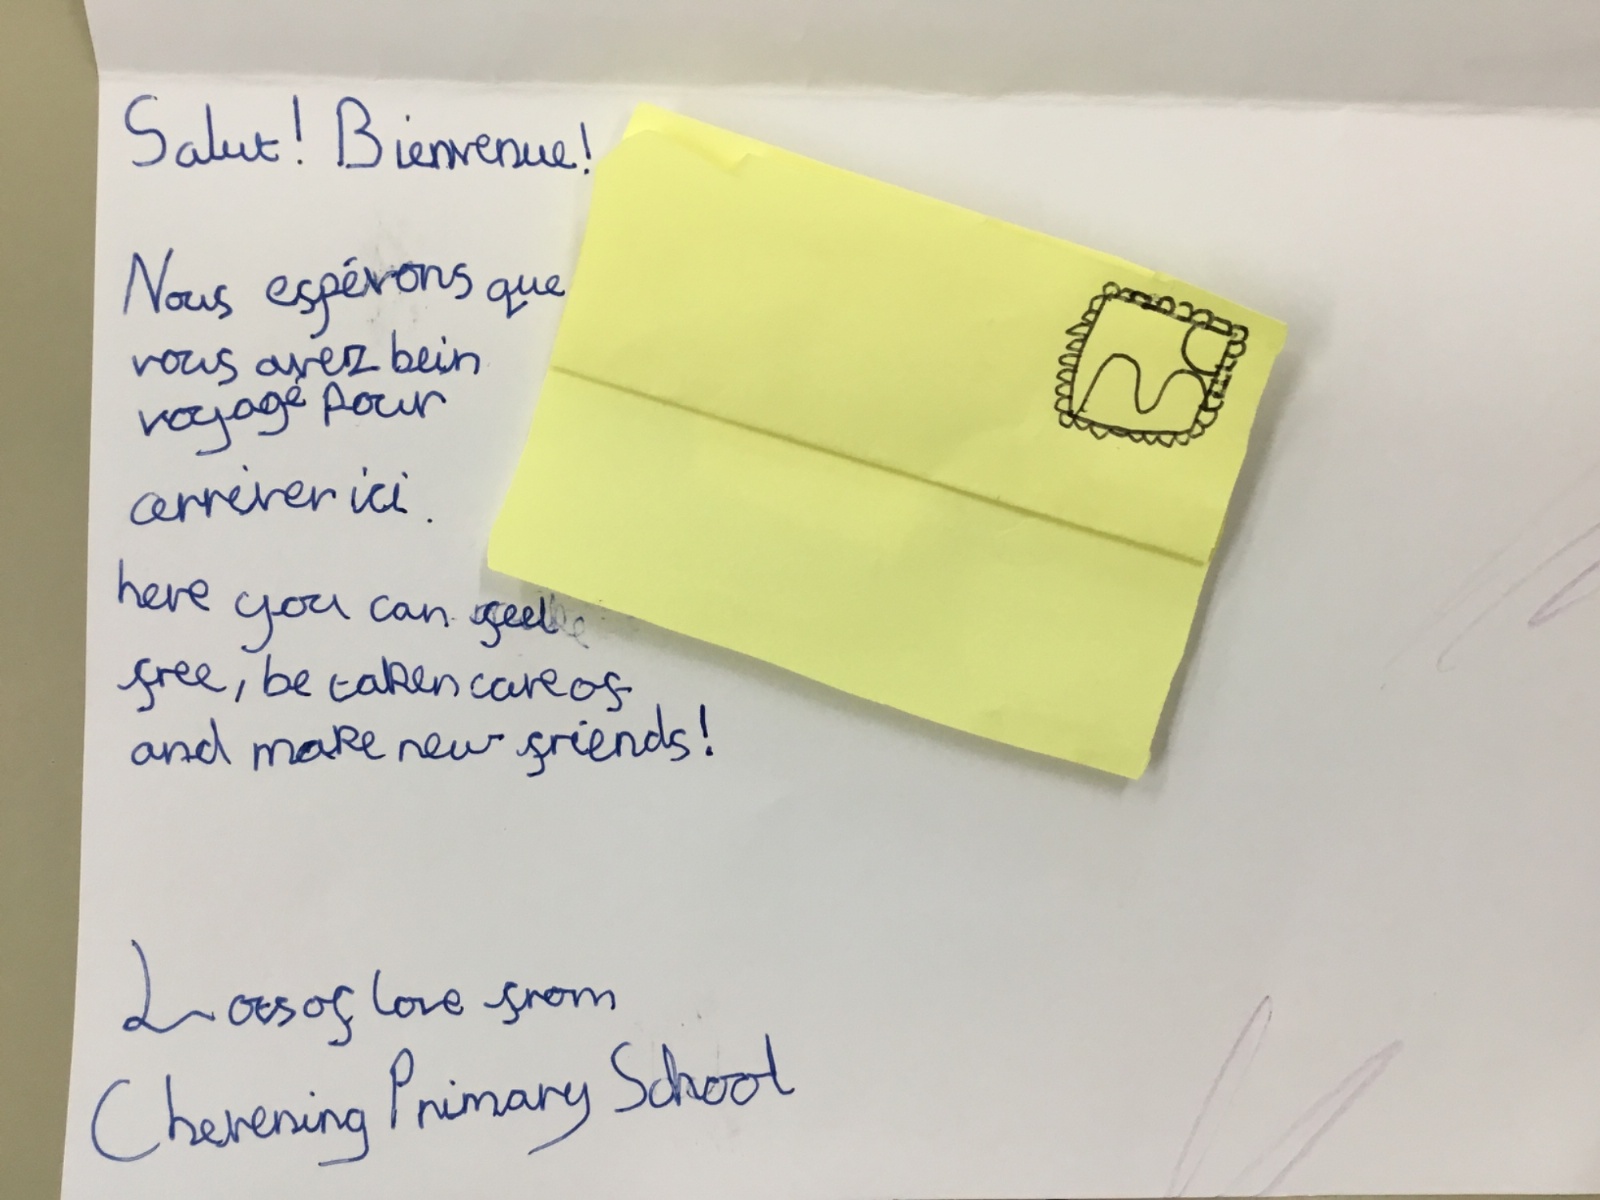 Salut! Bienvenue!
Nous espérons que
vous avez bein
voyagé pour
arrêver ici.
here you can feel
free, be taken care of
and make new friends!
Lots of love from
Chevening Primary School